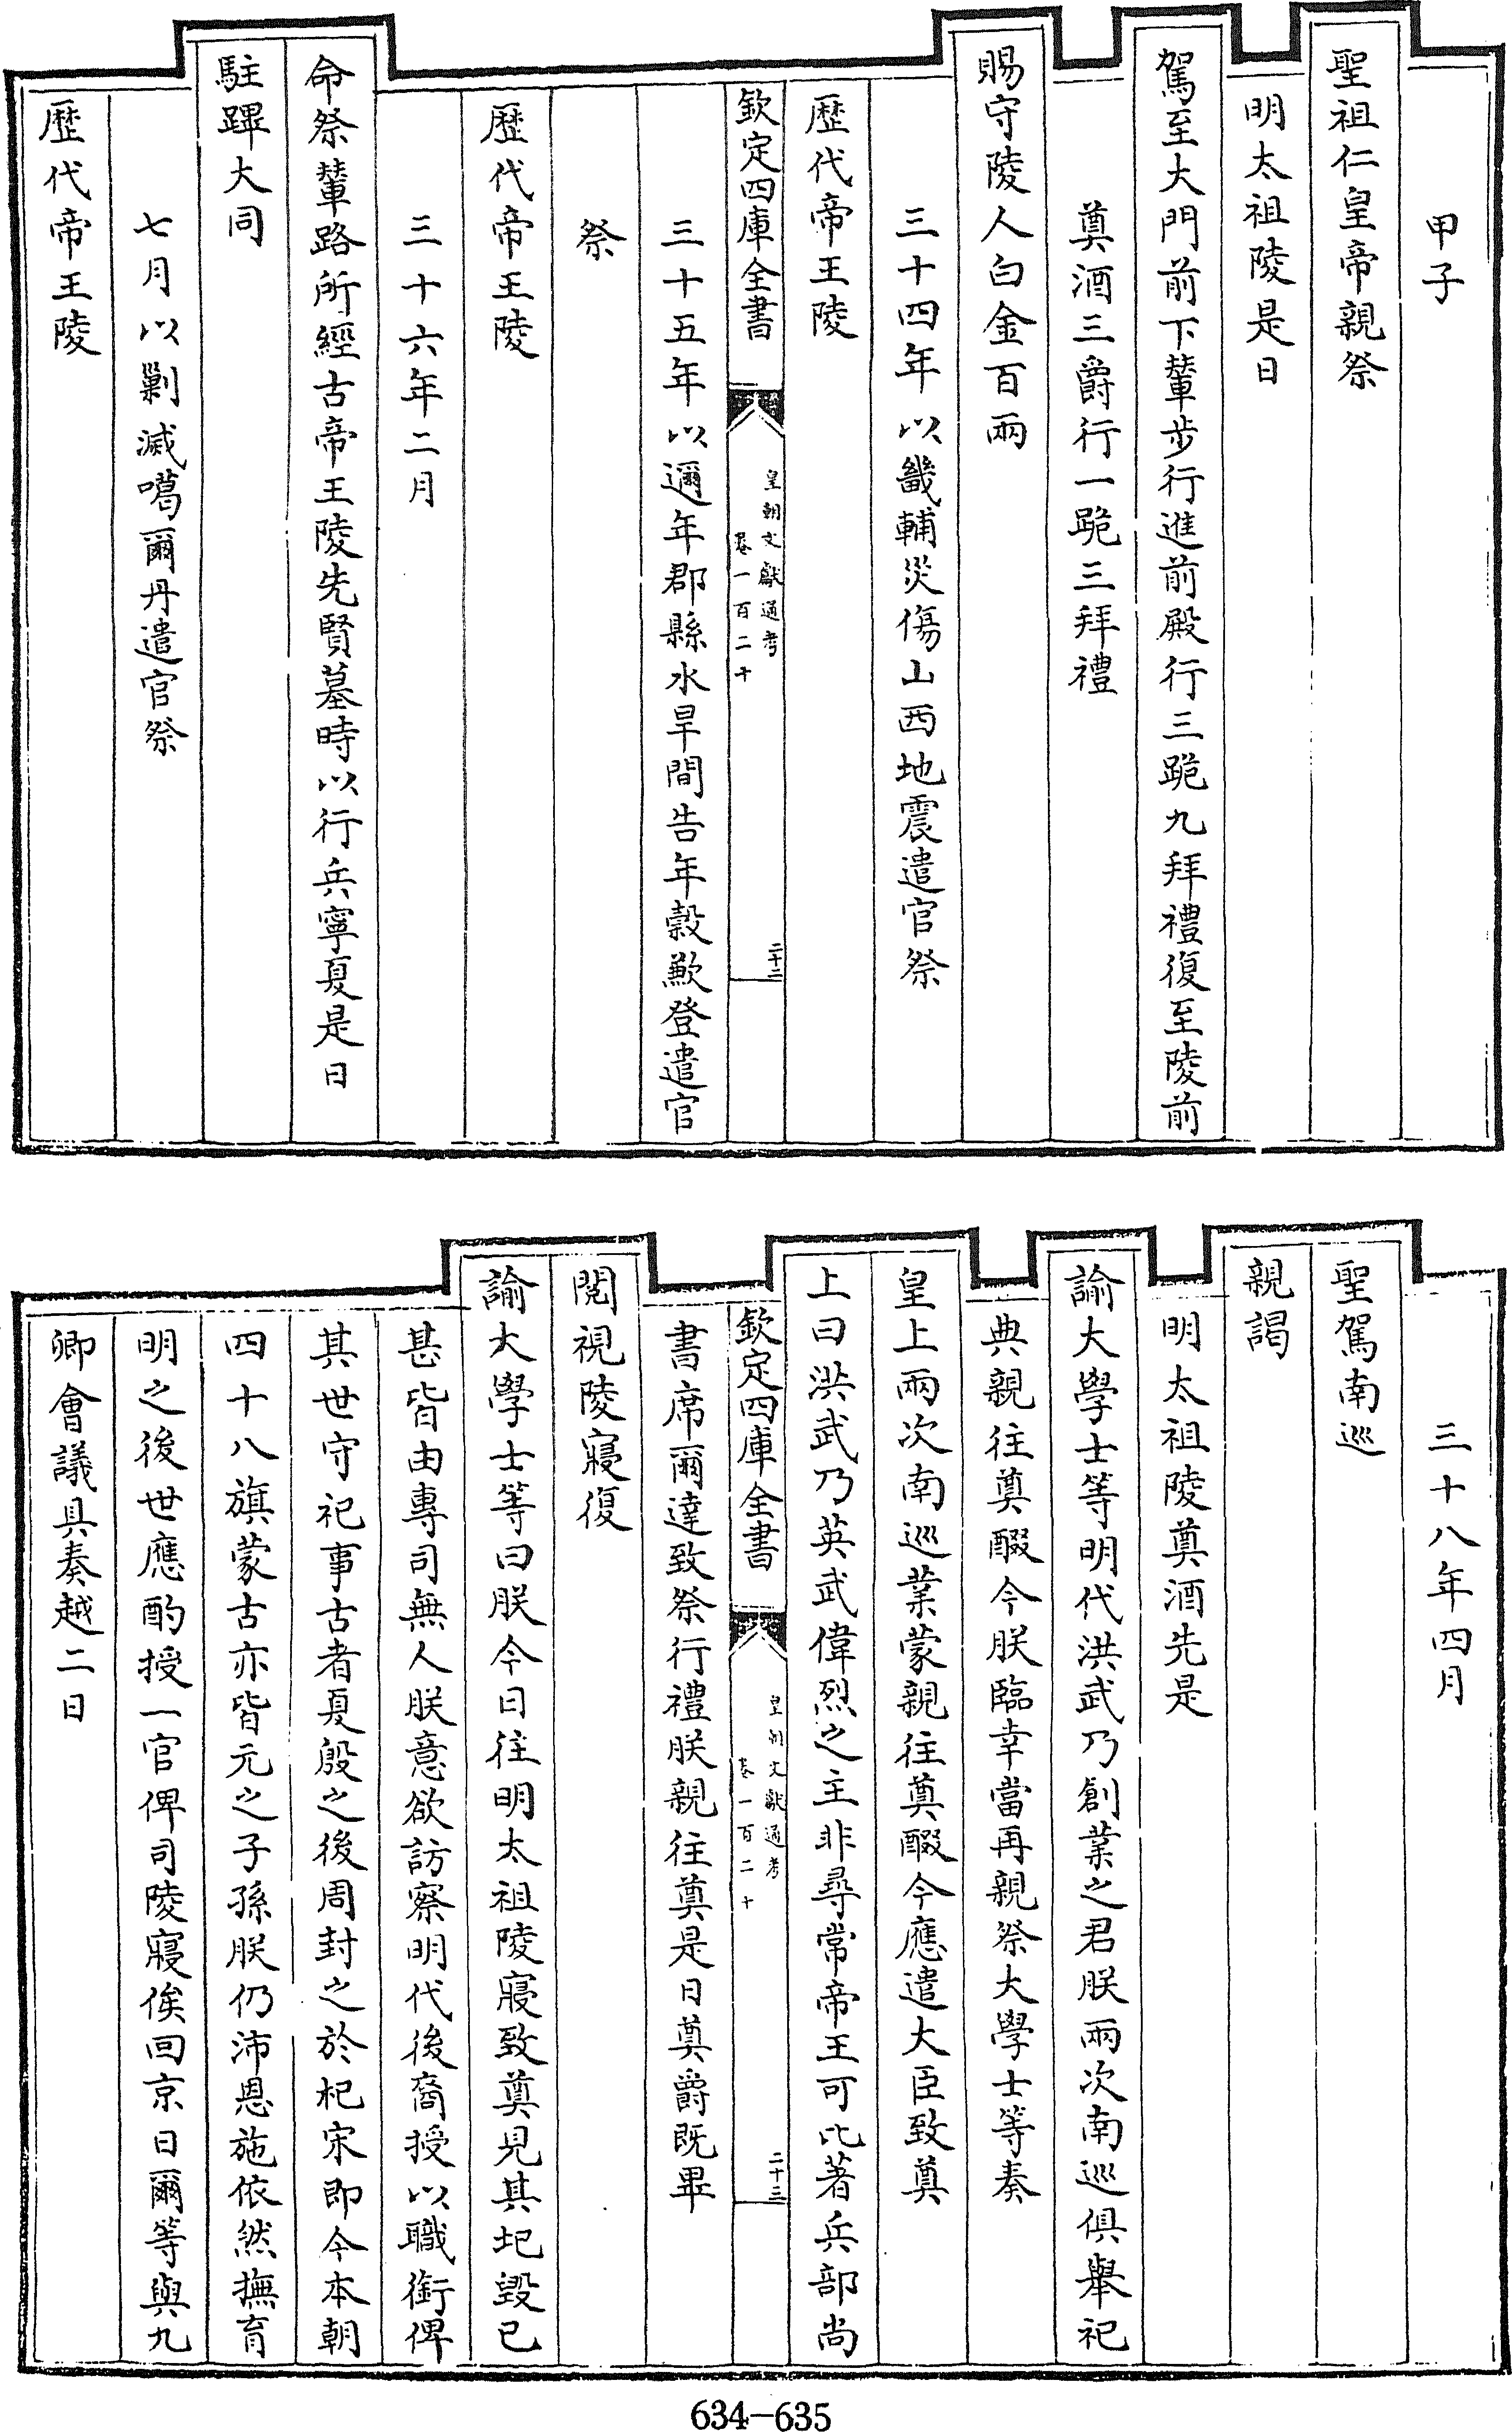 甲子
聖祖仁皇帝親祭
明太祖陵是日
駕至大門前下輦步行進前殿行三跪九拜禮復至陵前
奠酒三爵行一跪三拜禮
賜守陵人白金百兩
三十四年以畿輔災傷山西地震遣官祭
歷代帝王陵
欽定四庫全書
皇朝文獻通考
卷一百二十
二十二
三十五年以邇年郡縣水旱間告年穀歉登遣官
祭
歷代帝王陵
三十六年二月
命祭輦路所經古帝王陵先賢墓時以行兵寧夏是日
駐蹕大同
七月以剿滅噶爾丹遣官祭
歷代帝王陵
三十八年四月
聖駕南巡
親謁
明太祖陵奠酒先是
諭大學士等明代洪武乃創業之君朕兩次南巡俱舉祀
典親往奠醊今朕臨幸當再親祭大學士等奏
皇上兩次南巡業蒙親往奠醊今應遣大臣致奠
上曰洪武乃英武偉烈之主非尋常帝王可比著兵部尚
欽定四庫全書
皇朝文獻通考
卷一百二十
二十三
書席爾達致祭行禮朕親往奠是日奠爵既畢
閱視陵寢復
諭大學士等曰朕今日往明太祖陵寢致奠見其圮毀已
甚皆由專司無人朕意欲訪察明代後裔授以職銜俾
其世守祀事古者夏殷之後周封之於杞宋即今本朝
四十八旗蒙古亦皆元之子孫朕仍沛恩施依然撫育
明之後世應酌授一官俾司陵寢俟回京日爾等與九
卿會議具奏越二日
634-635